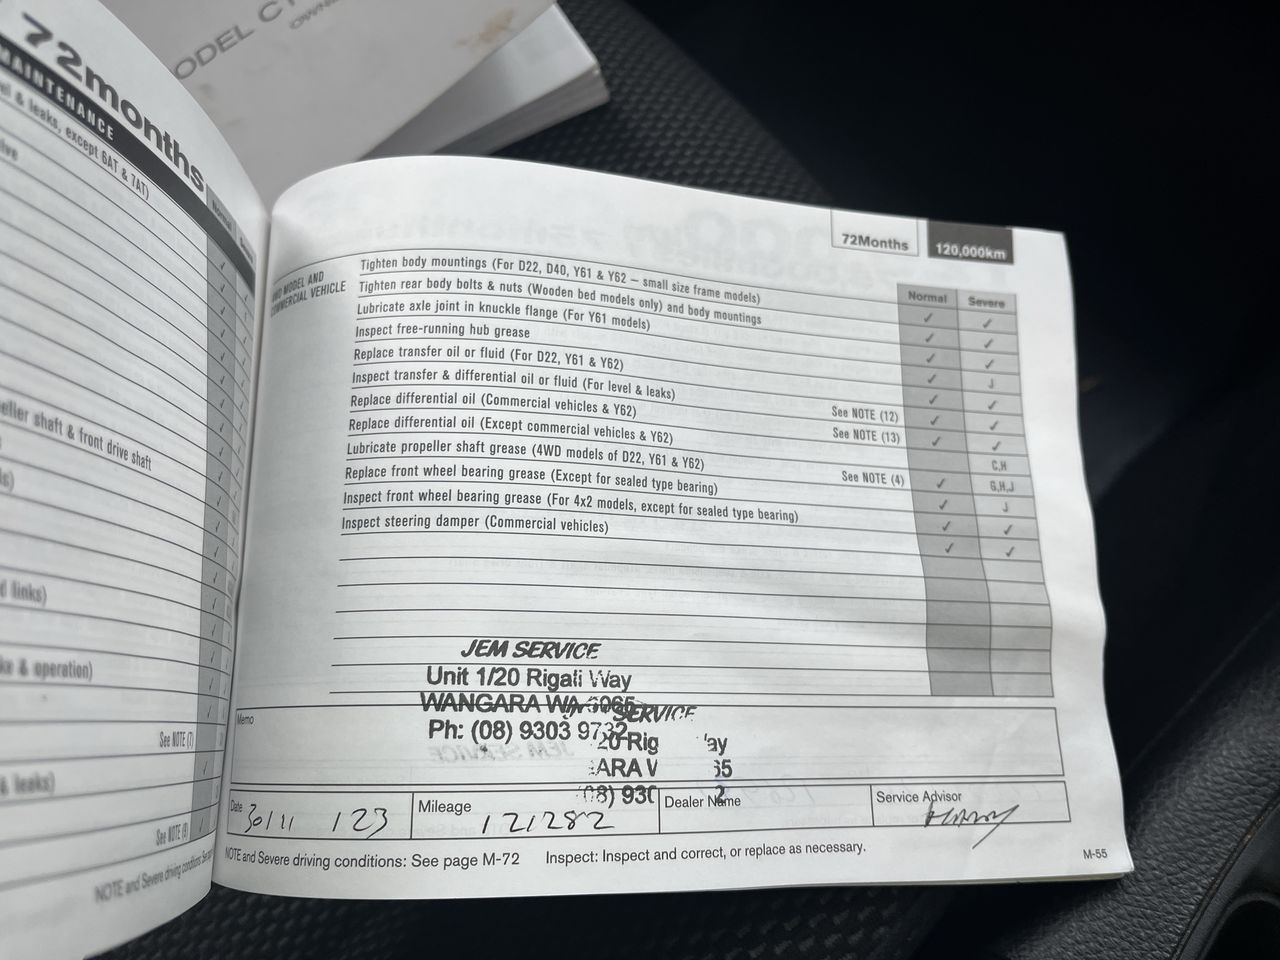 ODEL C1
OWNE
72months
MAINTENANCE
el & leaks, except 6AT & 7AT)
ive
Normal
eller shaft & front drive shaft
s)
d links)
ke & operation)
See NOTE (7)
& leaks)
See NOTE (9)
NOTE and Severe driving conditions: See
72Months
120,000km
Normal Severe
MODEL AND
COMMERCIAL VEHICLE
Tighten body mountings (For D22, D40, Y61 & Y62 – small size frame models) ✓ ✓
Tighten rear body bolts & nuts (Wooden bed models only) and body mountings ✓ ✓
Lubricate axle joint in knuckle flange (For Y61 models) ✓ ✓
Inspect free-running hub grease ✓ J
Replace transfer oil or fluid (For D22, Y61 & Y62) ✓ ✓
Inspect transfer & differential oil or fluid (For level & leaks) ✓ ✓
Replace differential oil (Commercial vehicles & Y62) See NOTE (12) ✓ ✓
Replace differential oil (Except commercial vehicles & Y62) See NOTE (13) C,H
Lubricate propeller shaft grease (4WD models of D22, Y61 & Y62) ✓ G,H,J
Replace front wheel bearing grease (Except for sealed type bearing) See NOTE (4) ✓ J
Inspect front wheel bearing grease (For 4x2 models, except for sealed type bearing) ✓ ✓
Inspect steering damper (Commercial vehicles) ✓ ✓
JEM SERVICE
Unit 1/20 Rigali Way
WANGARA WA 6065
Ph: (08) 9303 9732
SERVICE
20 Rig ay
ARA V 65
08) 930 2
Memo
Date 30/11 123
Mileage 121282
Dealer Name
Service Advisor
NOTE and Severe driving conditions: See page M-72 Inspect: Inspect and correct, or replace as necessary.
M-55